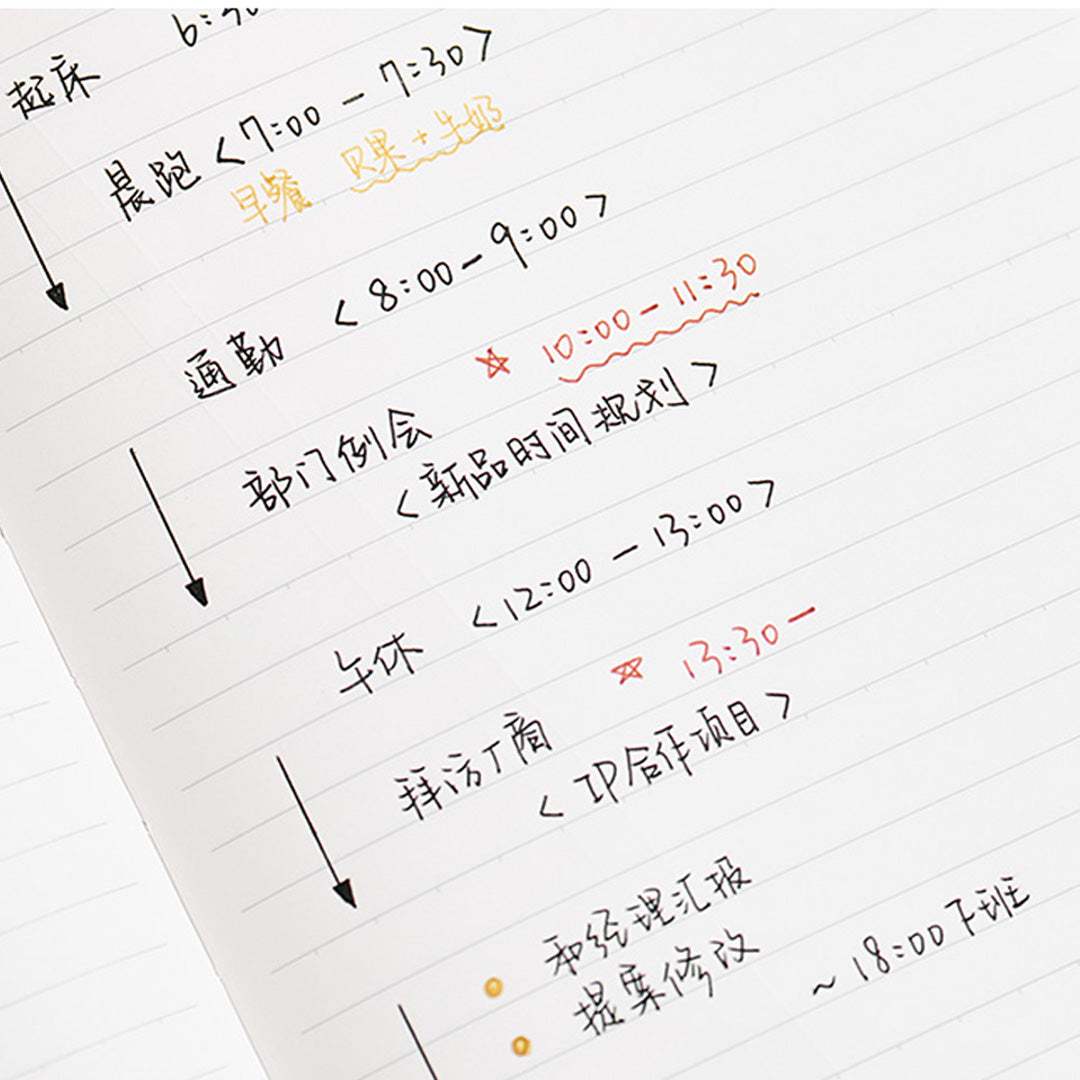 起床 6:30
晨跑 <7:00 - 7:30>
早餐 贝果+牛奶
通勤 <8:00-9:00>
☆ 10:00-11:30
部门例会
<新品时间规划>
午休 <12:00 - 13:00>
☆ 13:30-
拜访厂商
<IP合作项目>
和经理汇报
提案修改 ~18:00下班